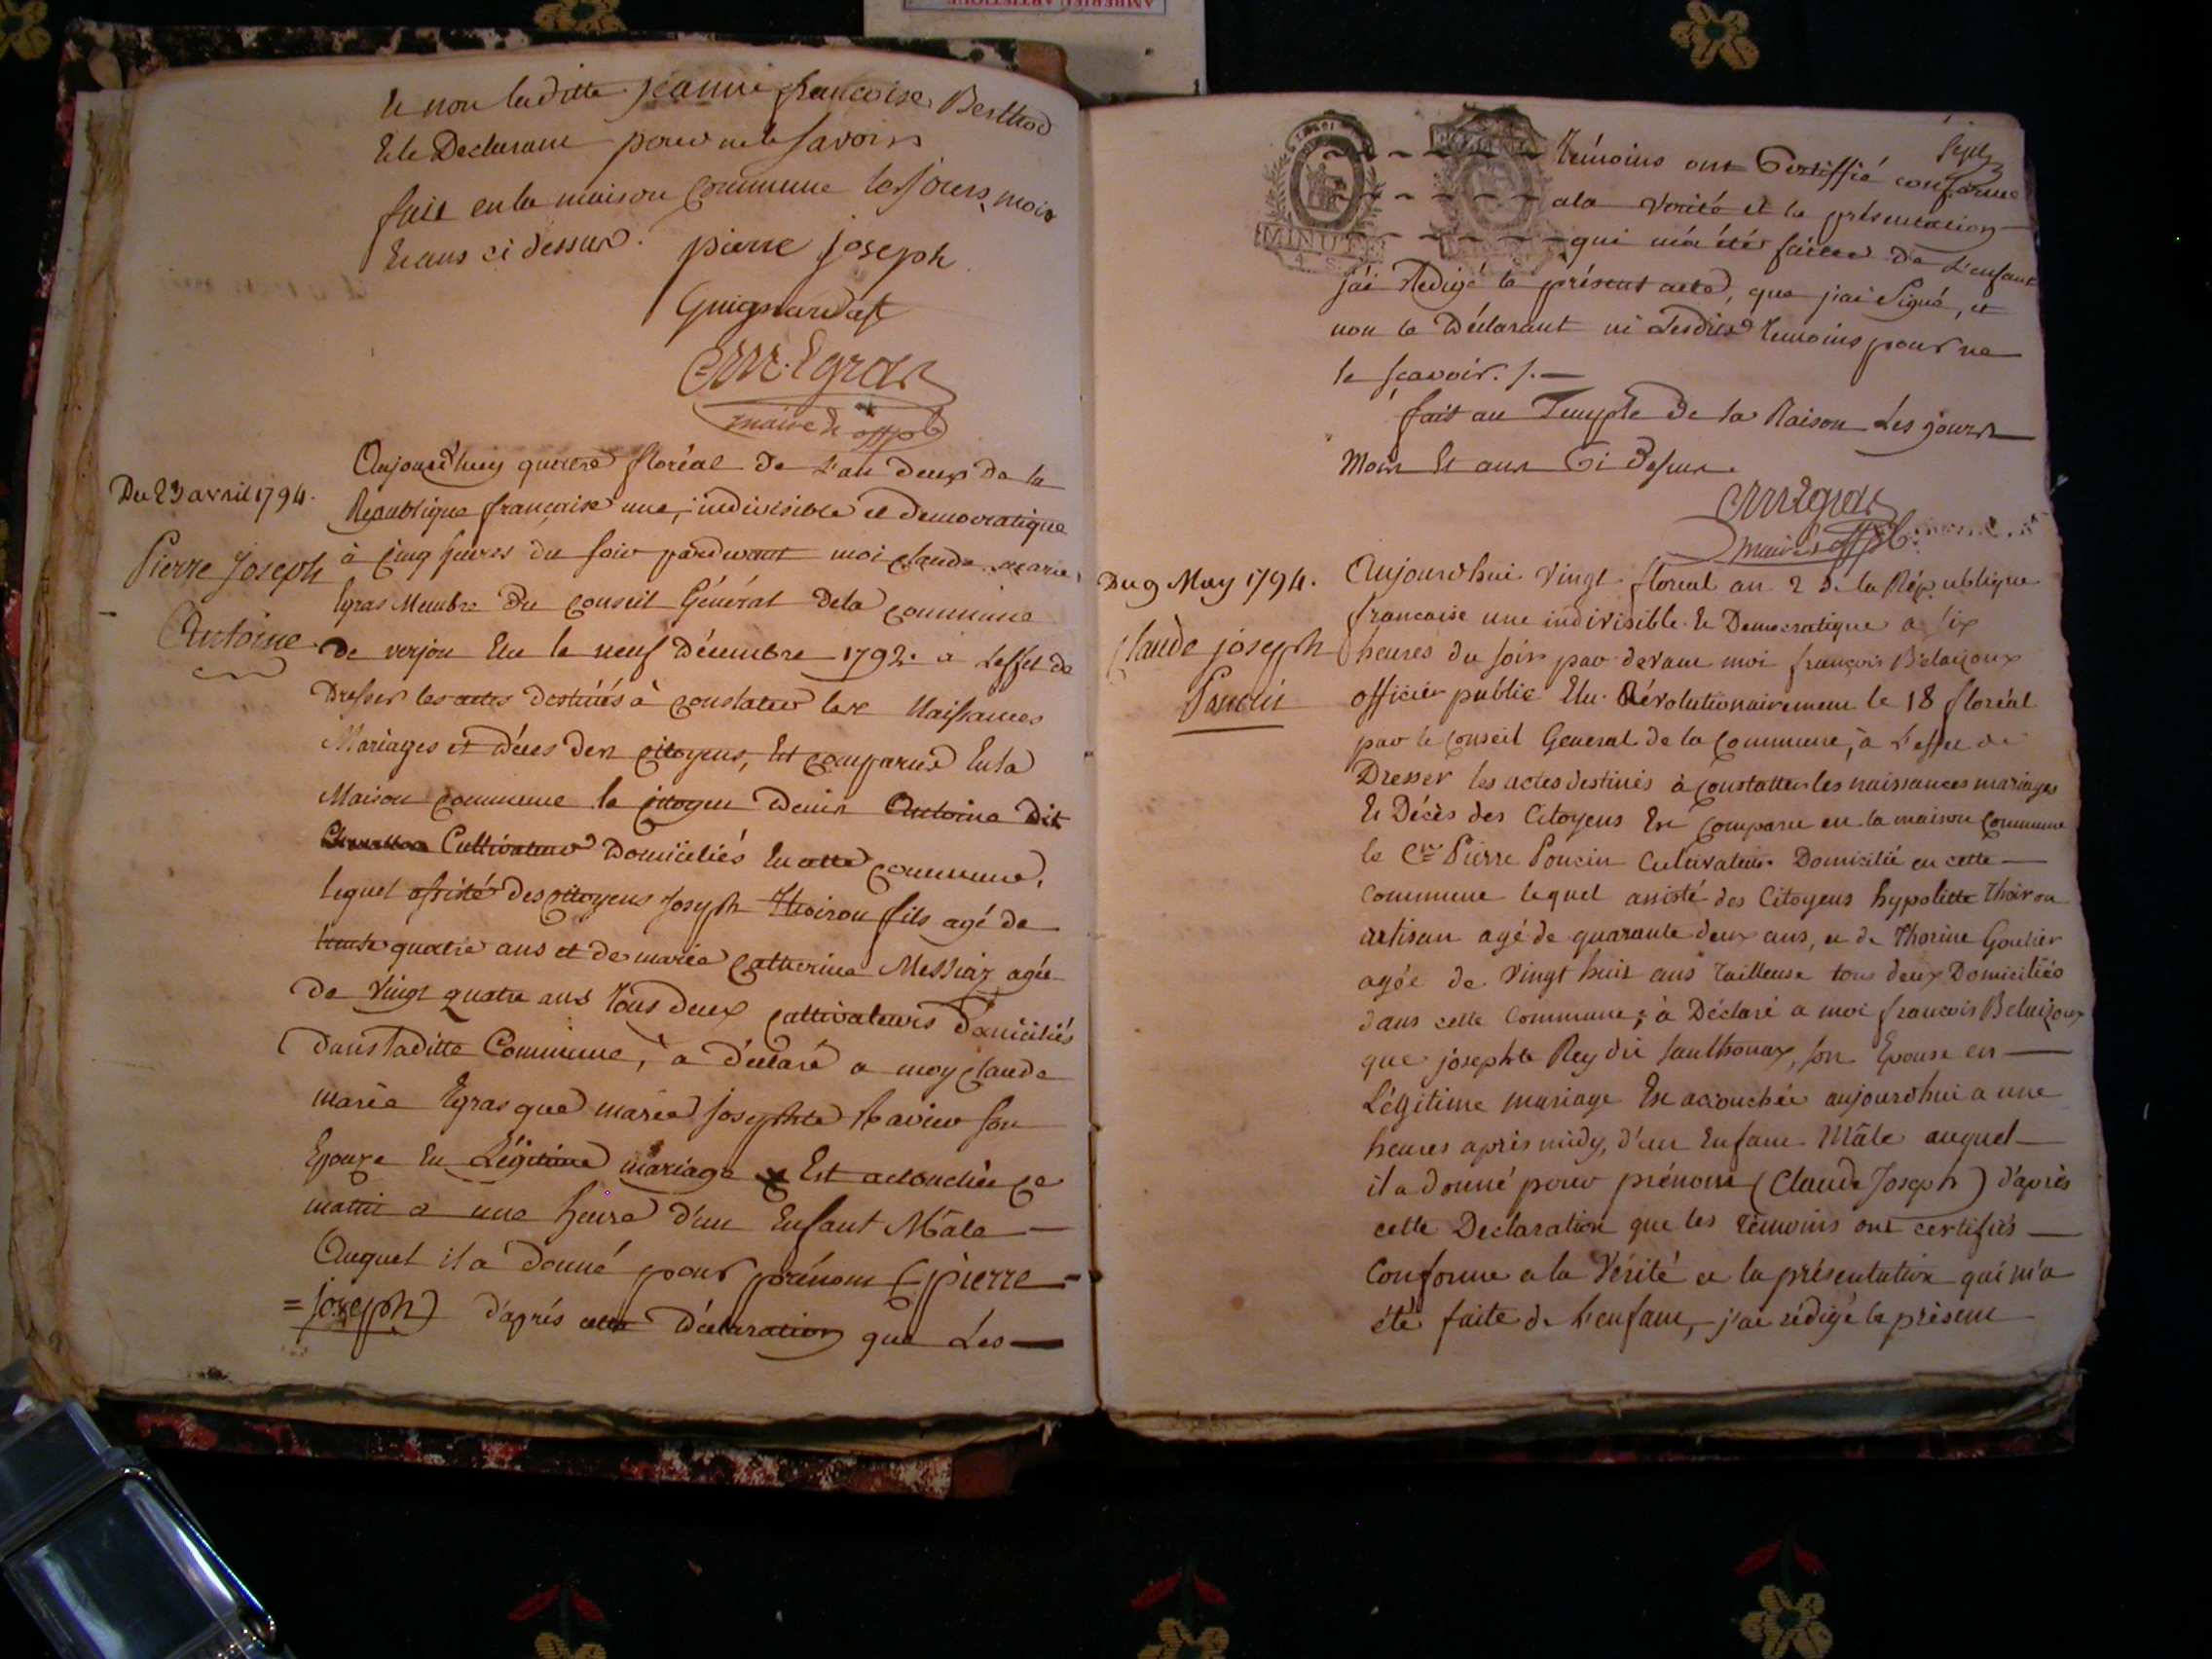 et non laditte jeanne francoise Berthod
Et le Declarant pour ne le savoir
fait en la maison commune les jours, mois
Et ans ci dessus. pierre joseph
Guignardat
C M Egras
maire & offp
Du 23 avril 1794.
Pierre Joseph
Antoine
Aujourd'huy quatre floréal de L'an deux de la
République française une, indivisible et democratique
à cinq heures du soir pardevant moi claude marie
Egras Membre du conseil Général dela commune
de verjon Elu le neuf Décembre 1792. a Leffet de
Dresser les actes destinés à constater les Naissances
Mariages et décès des citoyens, Est comparu En la
Maison commune le citoyen Denis Antoine dit
Cultivateur Domiciliés En cette commune,
lequel assisté des citoyens Joseph Thoiron fils agé de
trente quatre ans et de marie catherine Messiaz agée
de vingt quatre ans tous deux cultivateurs domiciliés
dans laditte Commune, a déclaré a moy claude
marie Egras que marie josephte son
Epouse En Légitime mariage Est accouchée ce
matin a une heure d'un Enfant Mâle —
Auquel il a donné pour prénom (pierre =
= joseph) d'après cette Déclaration que Les —
Sept
MINUTE
témoins ont Certiffié conforme
ala vérité et la présentation
qui m'a été faitte de L'enfant
j'ai Rédigé le présent acte, que j'ai Signé, et
non le Déclarant ni Lesdits témoins pour ne
le sçavoir. /. —
fait au Temple de la Raison Les jours
Mois Et ans Ci Dessus.
C M Egras
maire & offp
Du 9 May 1794.
Claude joseph
Poncin
Aujourdhui vingt floreal an 2 de la République
francaise une indivisible Et Democratique a six
heures du soir par devant moi françois Beluizoux
officier public Elu Révolutionairement le 18 floréal
par le conseil General de la Commune, à L'effet de
Dresser les actes destinés à constatter les naissances mariages
Et Décès des Citoyens Est comparu en la maison Commune
le Cen Pierre Poncin Cultivateur Domicilié en cette —
Commune lequel assisté des Citoyens hypolitte Thoiron
artisan agé de quarante deux ans, et de Thorine Goutier
agée de vingt huit ans tailleuse tous deux Domiciliés
dans cette Commune; à Déclaré a moi francois Beluizoux
que josephte Rey dit Santhonax, son Epouse en —
Légitime mariage Est accouchée aujourdhui a une
heures après midy, d'un Enfant Mâle auquel —
il a donné pour prénom (Claude Joseph) d'après
cette Declaration que les témoins ont certifiés —
Conforme a la Vérité et la présentation qui m'a
été faite de l'enfant, j'ai rédigé le présent